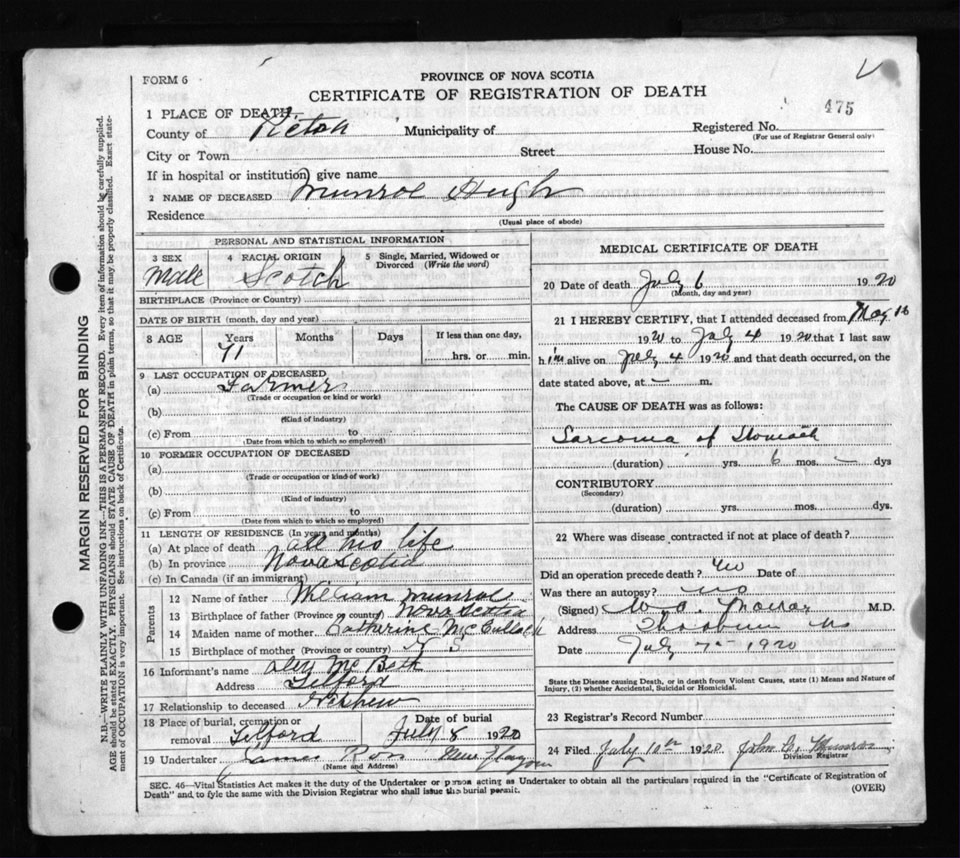 FORM 6
PROVINCE OF NOVA SCOTIA
CERTIFICATE OF REGISTRATION OF DEATH
475
1 PLACE OF DEATH
County of Pictou Municipality of Registered No.
(For use of Registrar General only)
City or Town Street House No.
If in hospital or institution, give name
2 NAME OF DECEASED Munroe Hugh
Residence
(Usual place of abode)
PERSONAL AND STATISTICAL INFORMATION
3 SEX 4 RACIAL ORIGIN 5 Single, Married, Widowed or Divorced (Write the word)
Male Scotch
BIRTHPLACE (Province or Country)
DATE OF BIRTH (month, day and year)
8 AGE Years Months Days If less than one day,
71 hrs. or min.
9 LAST OCCUPATION OF DECEASED
(a) Farmer
(Trade or occupation or kind or work)
(b)
(Kind of industry)
(c) From to
(Date from which to which so employed)
10 FORMER OCCUPATION OF DECEASED
(a)
(Trade or occupation or kind of work)
(b)
(Kind of industry)
(c) From to
(Date from which to which so employed)
11 LENGTH OF RESIDENCE (In years and months)
(a) At place of death all his life
(b) In province Nova Scotia
(c) In Canada (if an immigrant)
Parents
12 Name of father William Munroe
13 Birthplace of father (Province or country) Nova Scotia
14 Maiden name of mother Catharine McCulloch
15 Birthplace of mother (Province or country) N S
16 Informant's name Alex McBeth
Address Telford
17 Relationship to deceased Nephew
18 Place of burial, cremation or removal Telford
Date of burial July 8 1920
19 Undertaker James Ross New Glasgow
(Name and Address)
MEDICAL CERTIFICATE OF DEATH
20 Date of death July 6 1920
(Month, day and year)
21 I HEREBY CERTIFY, that I attended deceased from May 16
1920 to July 4 1920 that I last saw
h im alive on July 4 1920 and that death occurred, on the
date stated above, at – m.
The CAUSE OF DEATH was as follows:
Sarcoma of Stomach
(duration) yrs. 6 mos. – dys
CONTRIBUTORY
(Secondary)
(duration) yrs. mos. dys.
22 Where was disease contracted if not at place of death?
Did an operation precede death? no Date of
Was there an autopsy? no
(Signed) M.D.
Address Thorburn NS
Date July 7 – 1920
State the Disease causing Death, or in death from Violent Causes, state (1) Means and Nature of
Injury, (2) whether Accidental, Suicidal or Homicidal.
23 Registrar's Record Number
24 Filed July 10th 1920 John D. Munroe
Division Registrar
SEC. 46—Vital Statistics Act makes it the duty of the Undertaker or person acting as Undertaker to obtain all the particulars required in the "Certificate of Registration of
Death" and to fyle the same with the Division Registrar who shall issue the burial permit. (OVER)
MARGIN RESERVED FOR BINDING
N.B.—WRITE PLAINLY WITH UNFADING INK—THIS IS A PERMANENT RECORD. Every item of information should be carefully supplied.
AGE should be stated EXACTLY. PHYSICIANS should STATE CAUSE OF DEATH in plain terms, so that it may be properly classified. Exact state-
ment of OCCUPATION is very important. See instructions on back of Certificate.